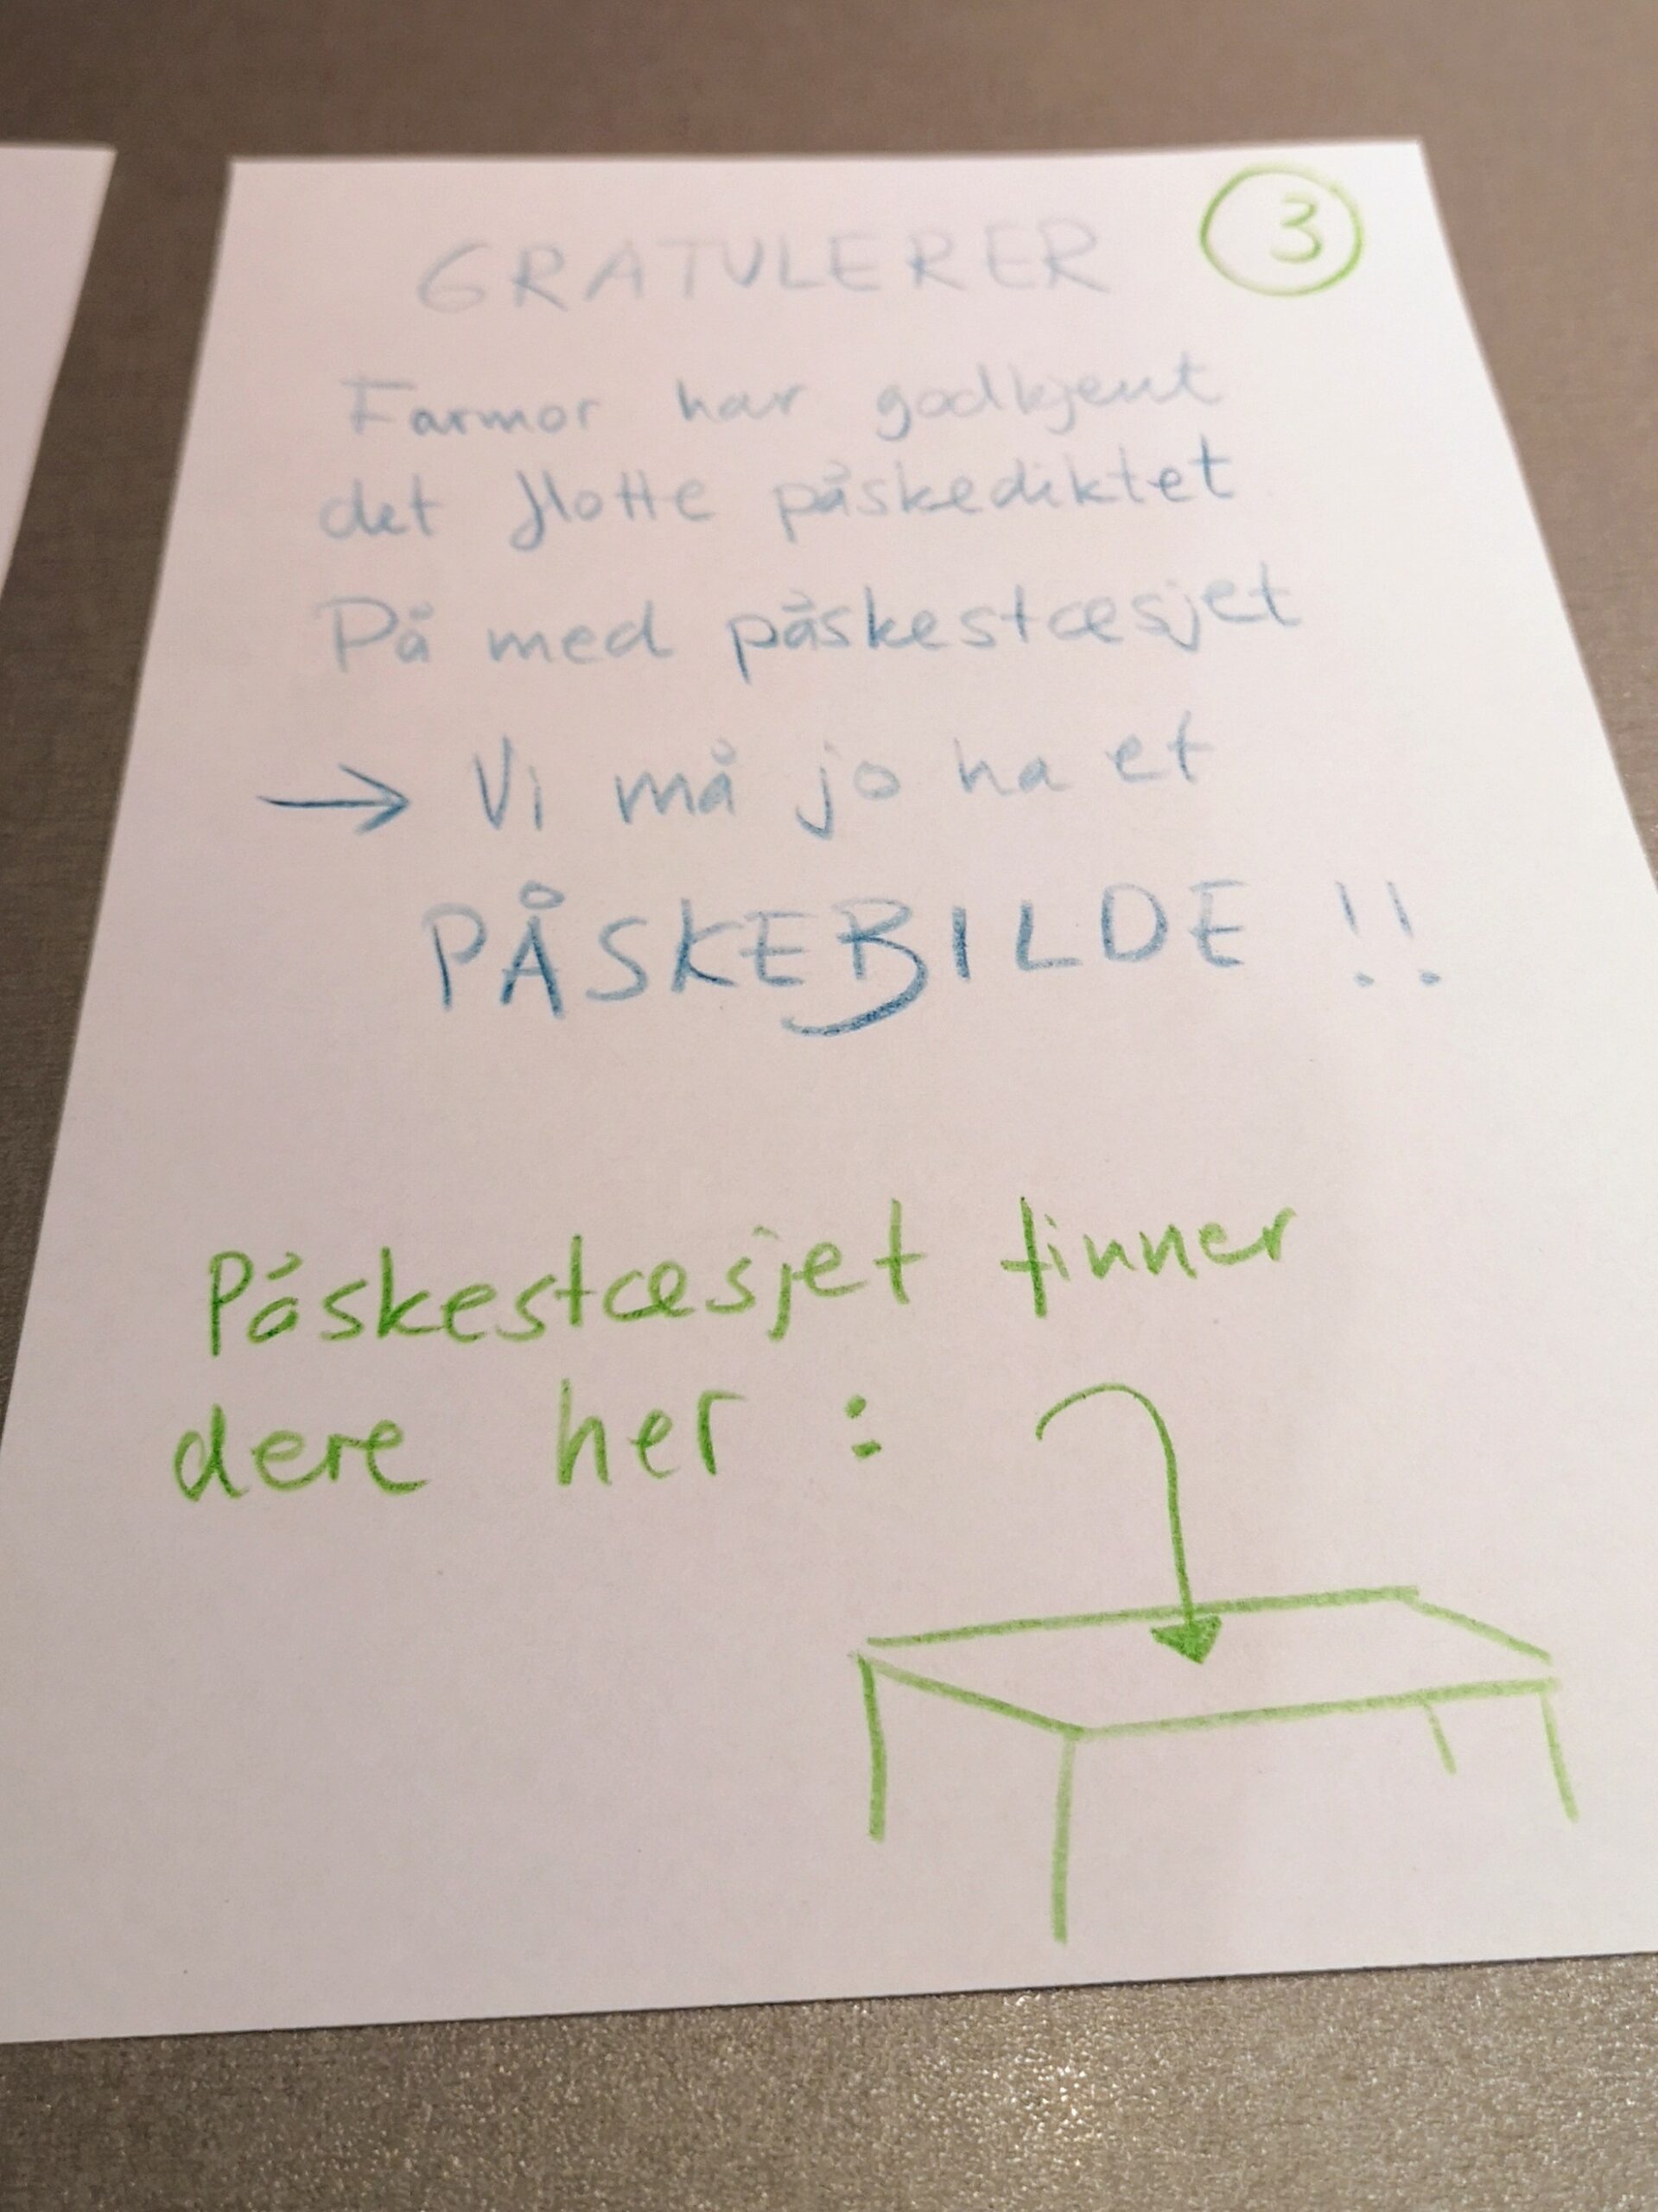 3
GRATULERER
Farmor har godkjent
det flotte påskediktet
På med påskestæsjet
→ Vi må jo ha et
PÅSKEBILDE !!
Påskestæsjet finner
dere her :